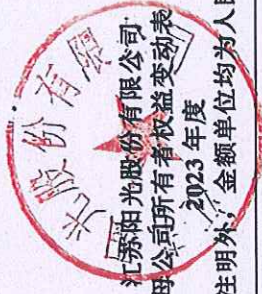 江苏阳光股份有限公司
母公司所有者权益变动表
2023 年度
注明外，金额单位均为人民
光股份有限